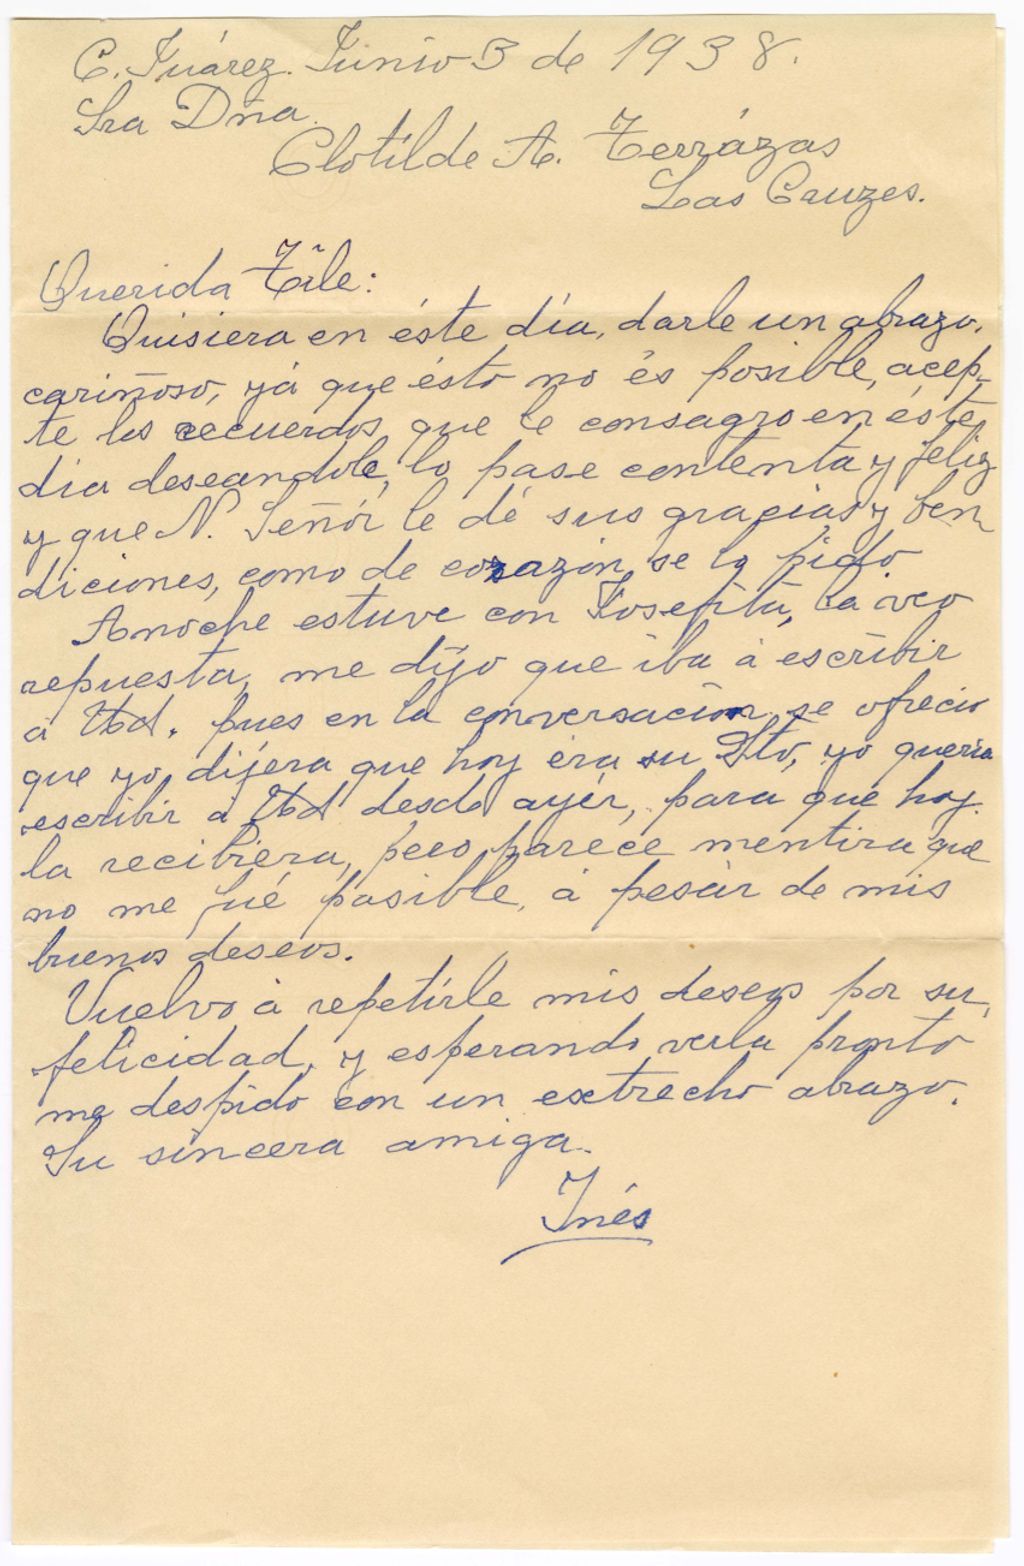 C. Juárez. Junio 3 de 1938.
Sra Dña.
Clotilde A. Terrázas
Las Cruzes.
Querida Tile:
Quisiera en éste día, darle un abrazo,
cariñoso, yá que ésto no és posible, acep-
te los recuerdos, que le consagro en éste
día deseandole, lo pase contenta y feliz
y que N. Señór le dé sus gracias y ben
diciones, como de corazón, se lo pido.
Anoche estuve con Josefita, la veo
repuesta, me dijo que iba á escribir
á Ud. pues en la conversación, se ofreció
que yo, dijera que hoy éra su Sto, yo quería
escribir á Ud desde ayér, para que hoy.
la recibiera, pero, parece mentira que
no me fué posible, á pesár de mis
buenos deseos.
Vuelvo á repetirle mis deseos por su,
felicidad, y esperando verla pronto
me despido con un extrecho abrazo.
Su sincera amiga.
Inés